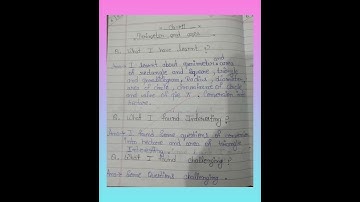 Perimeter and area
Q. What I have learnt ?
Ans→ I learnt about perimeter and area
of rectangle and square, triangle
and parallelogram, Radius, diameter,
area of circle, circumference of circle
and value of pie π, Conversion into
hectare.
Q. What I found Interesting ?
Ans→ I found Some questions of conversion
into hectare and area of triangle
Interesting.
Q. What I found challenging ?
Ans→ Some Questions challenging.